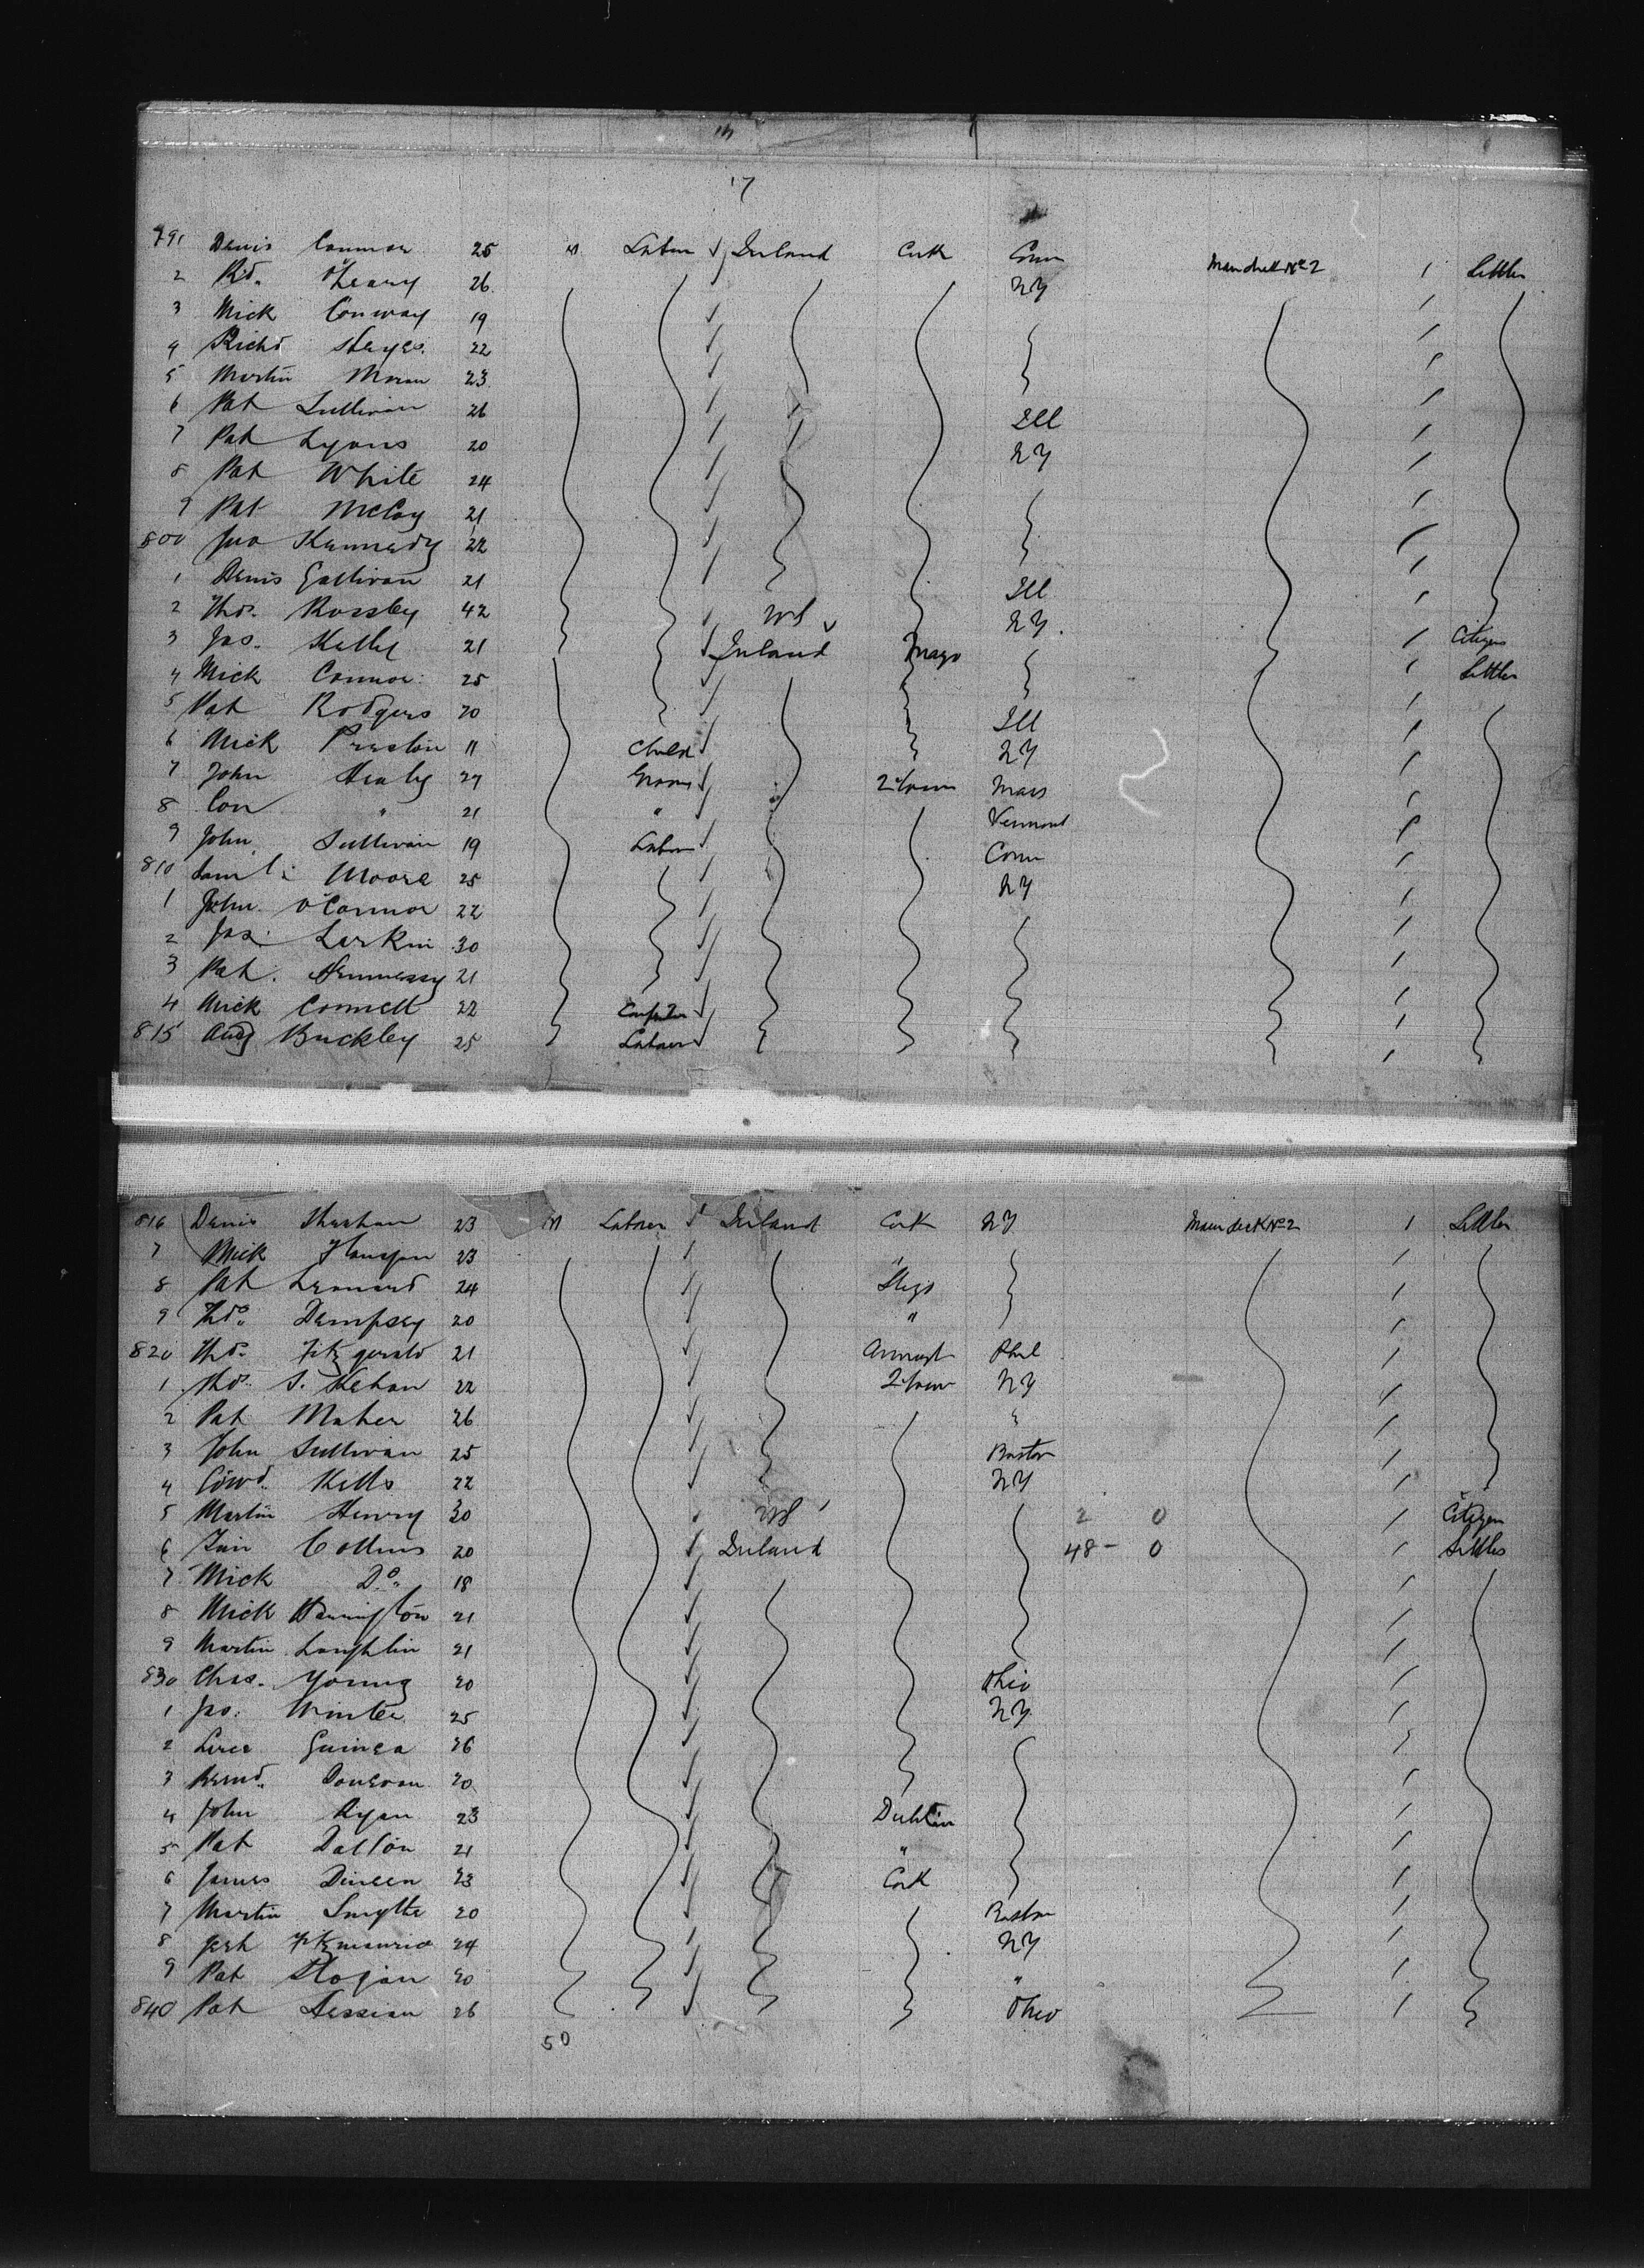 17
791 Denis Connor 25 M Labor Ireland Cork Conn Main deck No 2 1 Settler
2 Rd. O'Leary 26 NY 1
3 Mick Conway 19 1
4 Richd Hayes 22 1
5 Martin Moran 23 1
6 Pat Sullivan 26 Ill 1
7 Pat Lyons 20 NY 1
8 Pat White 24 1
9 Pat McCoy 21 1
800 Jno Kennedy 22 1
1 Denis Gallivan 21 Ill 1
2 Thos. 42 US NY. 1 Citizen
3 Jas. Kelly 21 Ireland Mayo 1 Settler
4 Mick Connor 25 1
5 Pat Rodgers 20 Ill 1
6 Mick Preston 11 Child NY 1
7 John Healy 27 Groom Q. town Mass 1
8 Con " 21 " Vermont 1
9 John Sullivan 19 Labor Conn 1
810 Saml. Moore 25 NY 1
1 John O'Connor 22 1
2 Jas. Larkin 30 1
3 Pat. Hennessy 21 1
4 Mick Connell 22 1
815 Buckley 25 Laborer 1
816 Denis Sheehan 23 M Laborer Ireland Cork NY Main deck No 2 1 Settler
7 Mick 23 " 1
8 Pat Leonard 24 Sligo 1
9 Tho. Dempsey 20 " 1
820 Tho. Fitzgerald 21 Phil 1
1 Tho. S. Kehan 22 Q. town NY 1
2 Pat Maher 26 " 1
3 John Sullivan 25 Boston 1
4 Edwd. Kells 22 NY 1
5 Martin Henry 30 US 2 0 1 Citizen
6 Collins 20 Ireland 48 - 0 1 Settler
7 Mick Do. 18 1
8 Mick Harrington 21 1
9 Martin Laughlin 21 1
830 Chas. Young 20 Ohio 1
1 Jas. Winter 25 NY. 1
2 Guinea 26 1
3 Bernd. Donevan 20 1
4 John Ryan 23 Dublin 1
5 Pat Dalton 21 " 1
6 James Dineen 23 Cork 1
7 Martin Smythe 20 Boston 1
8 Fitzmaurice 24 NY 1
9 Pat Hogan 20 " 1
840 Pat 26 Ohio 1
50